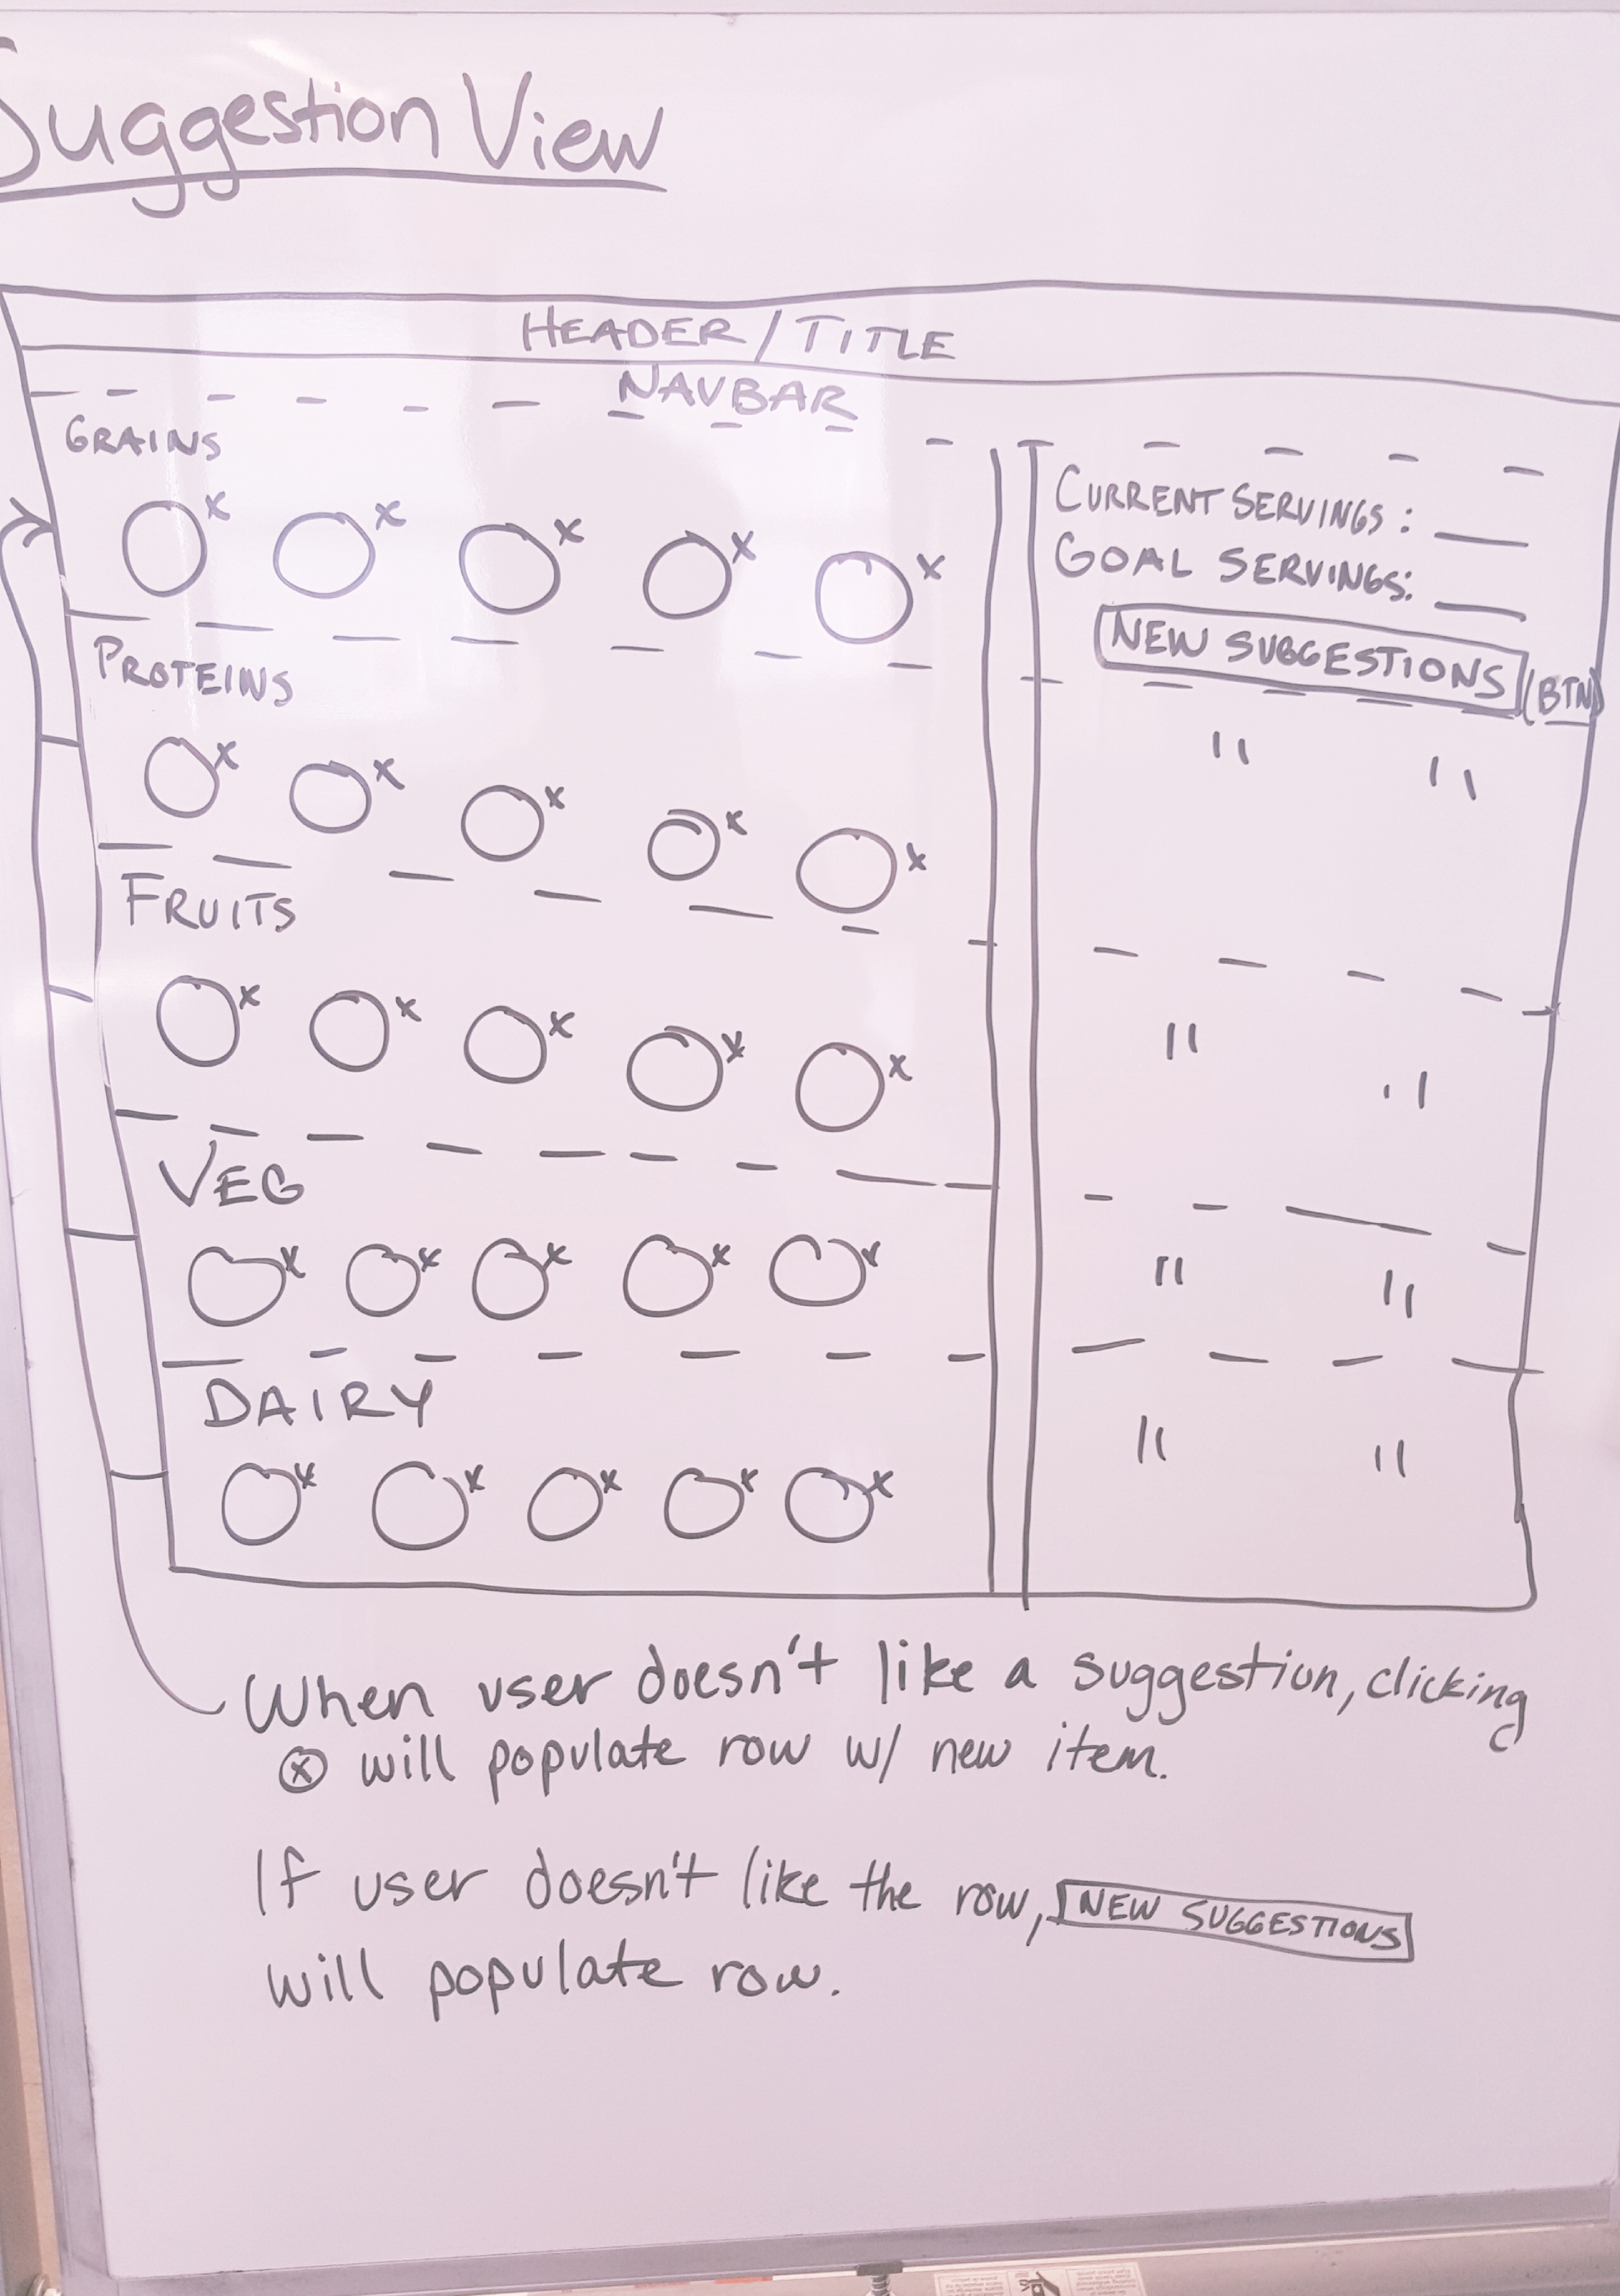 Suggestion View
HEADER/TITLE
NAVBAR
GRAINS
x x x x x
CURRENT SERVINGS: ___
GOAL SERVINGS: ___
NEW SUGGESTIONS (BTN)
PROTEINS
x x x x x
" "
FRUITS
x x x x x
" "
VEG
x x x x x
" "
DAIRY
x x x x x
" "
When user doesn't like a suggestion, clicking
ⓧ will populate row w/ new item.
If user doesn't like the row, NEW SUGGESTIONS
will populate row.